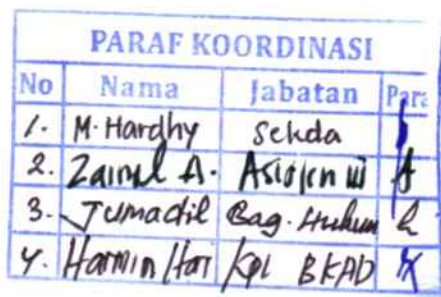 PARAF KOORDINASI
No Nama Jabatan Para
1. M. Hardhy Sekda
2. Zainal A. Asisten III
3. Jumadil Bag. Hukum
4. Harmin Hari Kpl BKAD